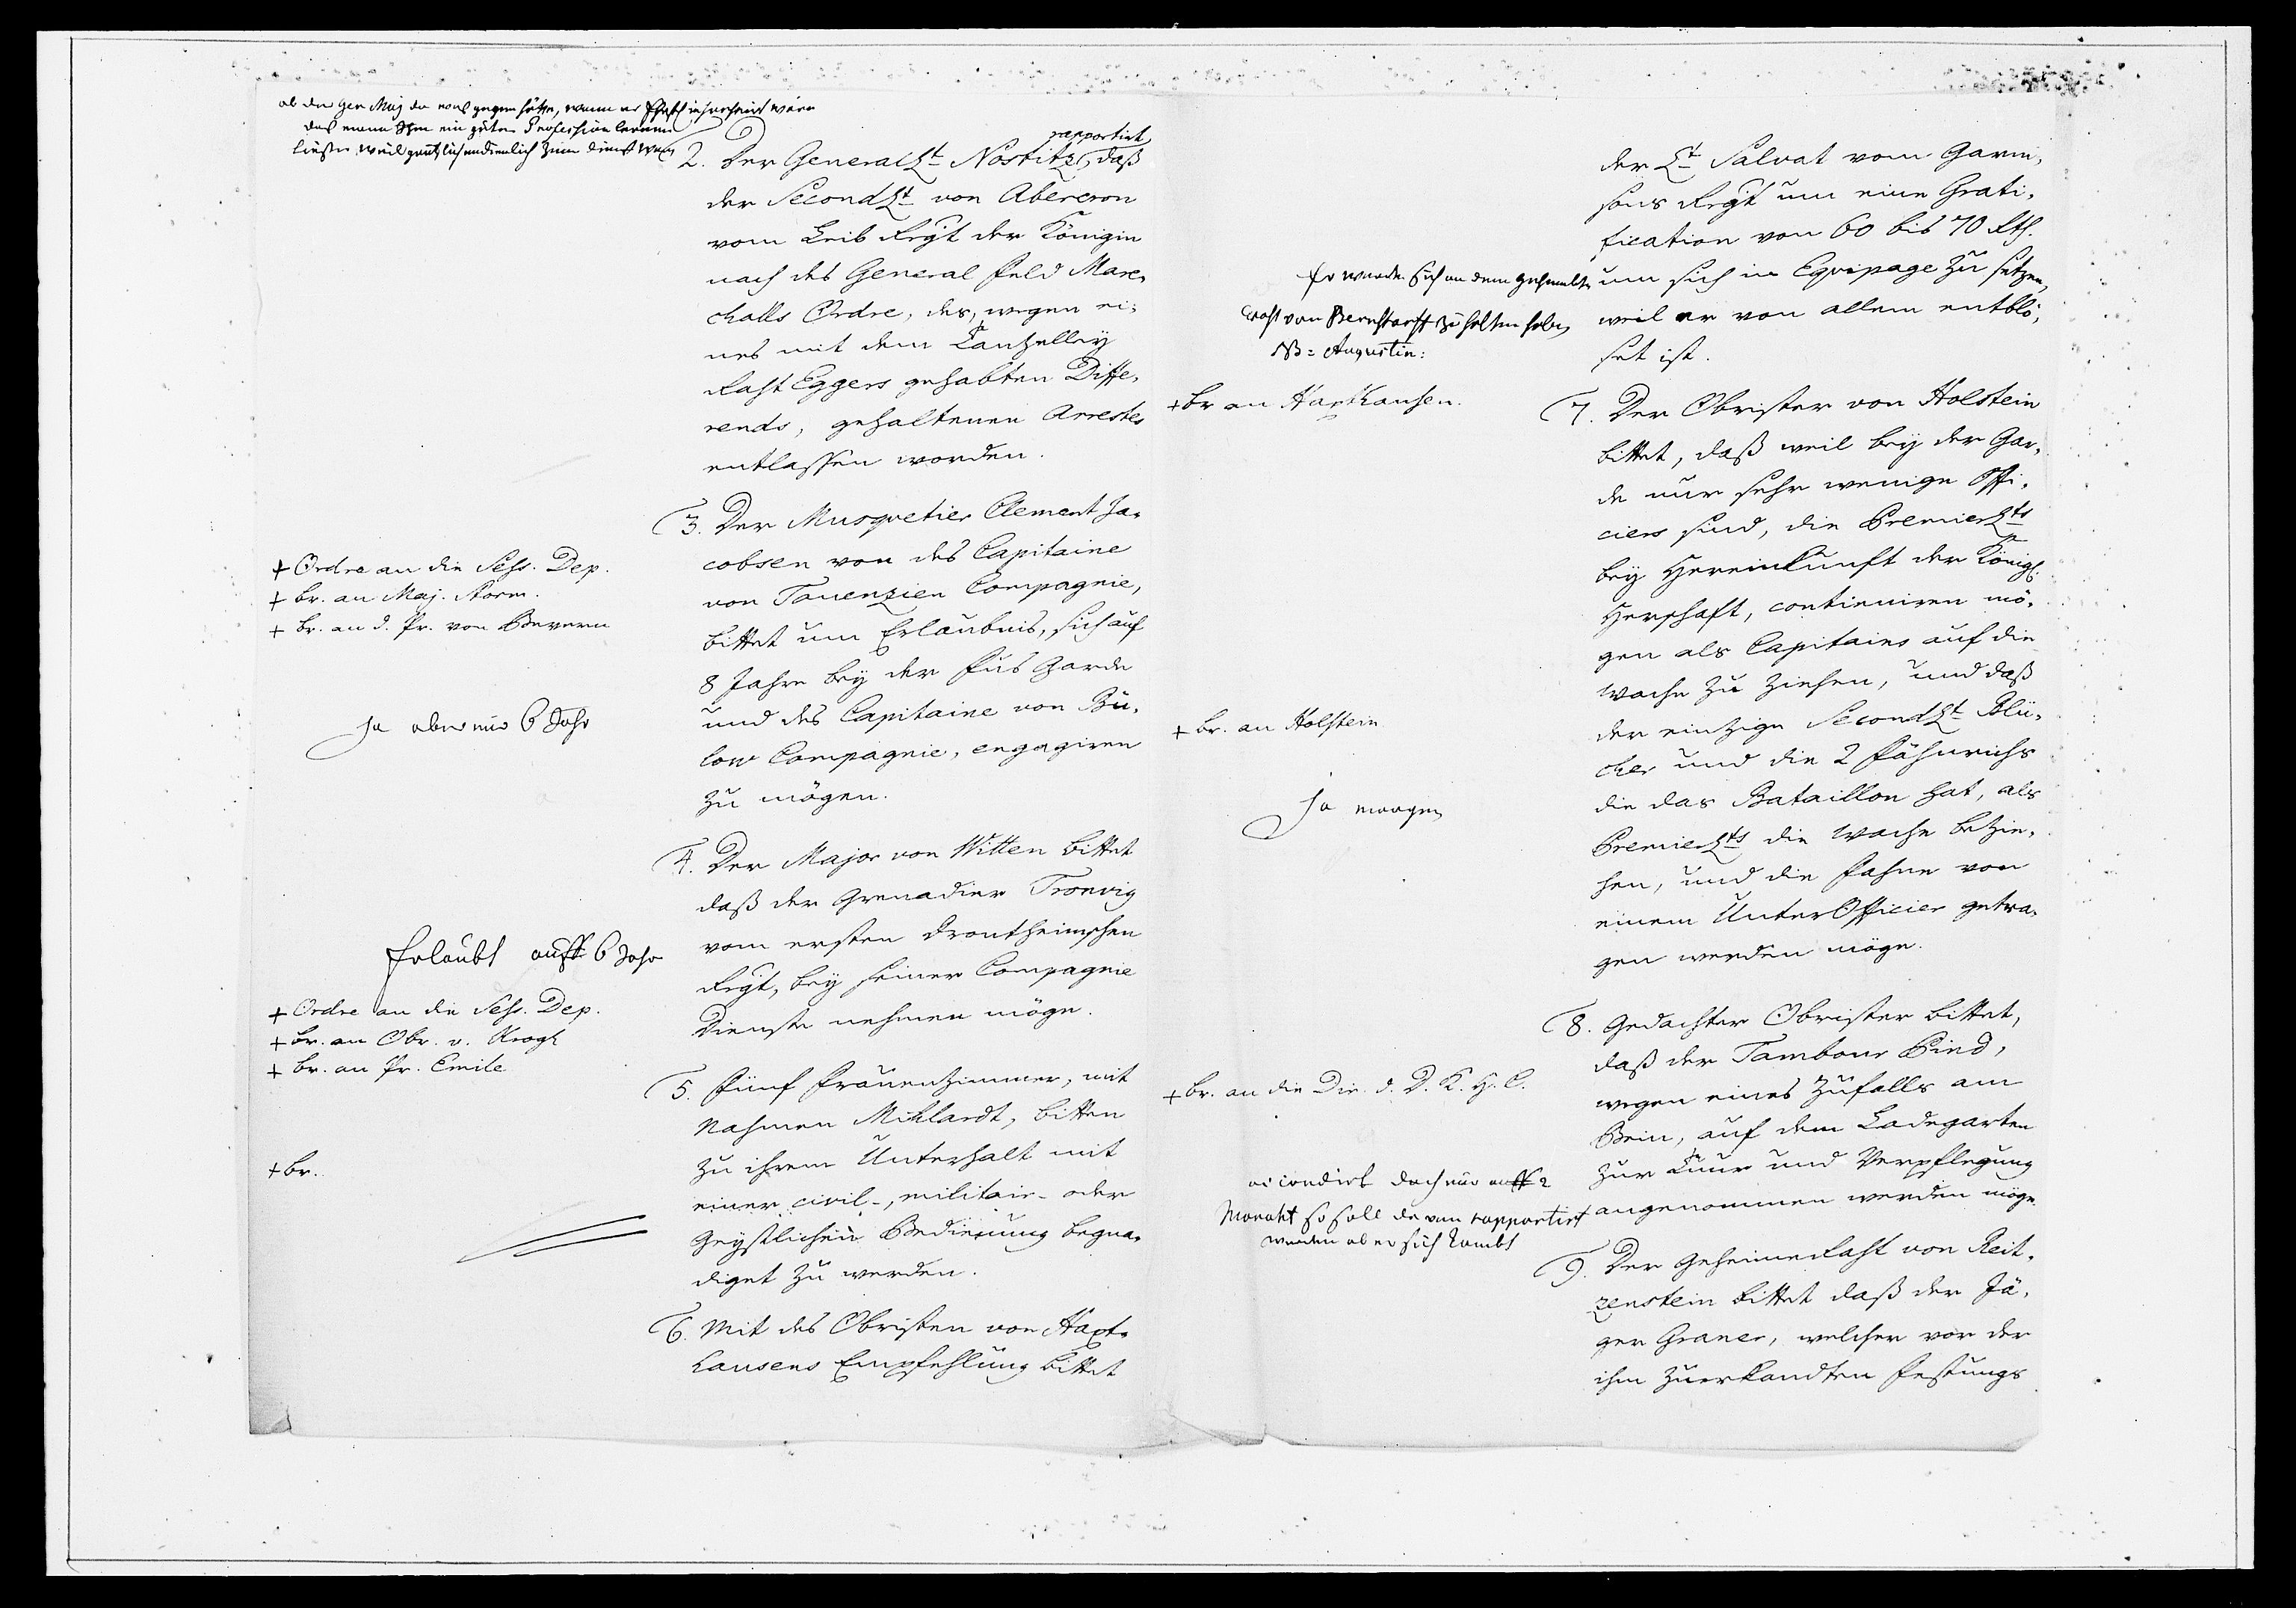 ob der Gen Maj da was gegen hätte, wann er
das mann Ihm ein gute Profession lernen
ließe weil gäntzlich undienlich zum dienst
2. Der General Lt Nostitz rapportirt, daß
der Second Lt von Abercron
vom Leib Regt der Königin
nach des General Feld Mare,
challs Ordre, des, wegen ei,
nes mit dem Cantzelley
Raht Eggers gehabten Diffe,
rends, gehaltenen Arrestes
entlassen worden.
3. Der Musqvetier Clement Ja,
cobsen von des Capitaine
von Tauenzien Compagnie,
bittet um Erlaubnis, sich auf
8 Jahre bey der Fus Garde
und des Capitaine von Bü,
low Compagnie, engagiren
zu mögen.
+ Ordre an die Schs. Dep.
+ br. an Maj. Storm.
+ br. an d. Pr. von Bevern
Ja aber nur 6 Jahr
4. Der Major von Witten bittet
daß der Grenadier Tronvig
vom ersten Drontheimschen
Regt, bey seiner Compagnie
Dienste nehmen möge.
Erlaubt auff 6 Jahr
+ Ordre an die Schs. Dep.
+ br. an Obr. v. Krogh
+ br. an Pr. Emile
5. Fünf Frauenzimmer, mit
Nahmen Mihlardt, bitten
zu ihrem Unterhalt mit
einer civil-, militair- oder
Geystlichen Bedienung begna,
diget zu werden.
+ br.
6. Mit des Obristen von Haxt,
hausens Empfehlung bittet
der Lt Salvat vom Garni,
sons Regt um eine Grati,
fication von 60 bis 70 Rth.
um sich in Eqvipage zu setzen,
weil er von allem entblö,
set ist.
Er werde sich an dem Geheimbte
Raht von Bernstorff zu halten haben
NB: Augustin:
+ br an Haxthausen.
7. Der Obrister von Holstein
bittet, daß weil bey der Gar,
de nur sehr wenige Offi,
ciers sind, die Premier Lts
bey Hereinkunft der Königl.
Herschaft, continuiren mö,
gen als Capitains auf die
Wache zu ziehen, und daß
der eintzige Second Lt Blü,
cher und die 2 Fähnrichs
die das Bataillon hat, als
Premier Lts die Wache bezie,
hen, und die Fahne von
einem Unter Officier getra,
gen werden möge.
+ br. an Holstein
Ja mögen
8. Gedachter Obrister bittet,
daß der Tambour Pind,
wegen eines Zufalls am
Bein, auf dem Ladegarten
zur Cuur und Verpflegung
angenommen werden möge.
+ br. an die Dir. d. D. K. H. C.
accordirt doch nur auff 2
Monaht so soll da von rapportirt
werden ob er sich
9. Der Geheime Raht von Reit,
zenstein bittet daß der Jä,
ger Graner, welcher vor der
ihm zuerkandten Festungs